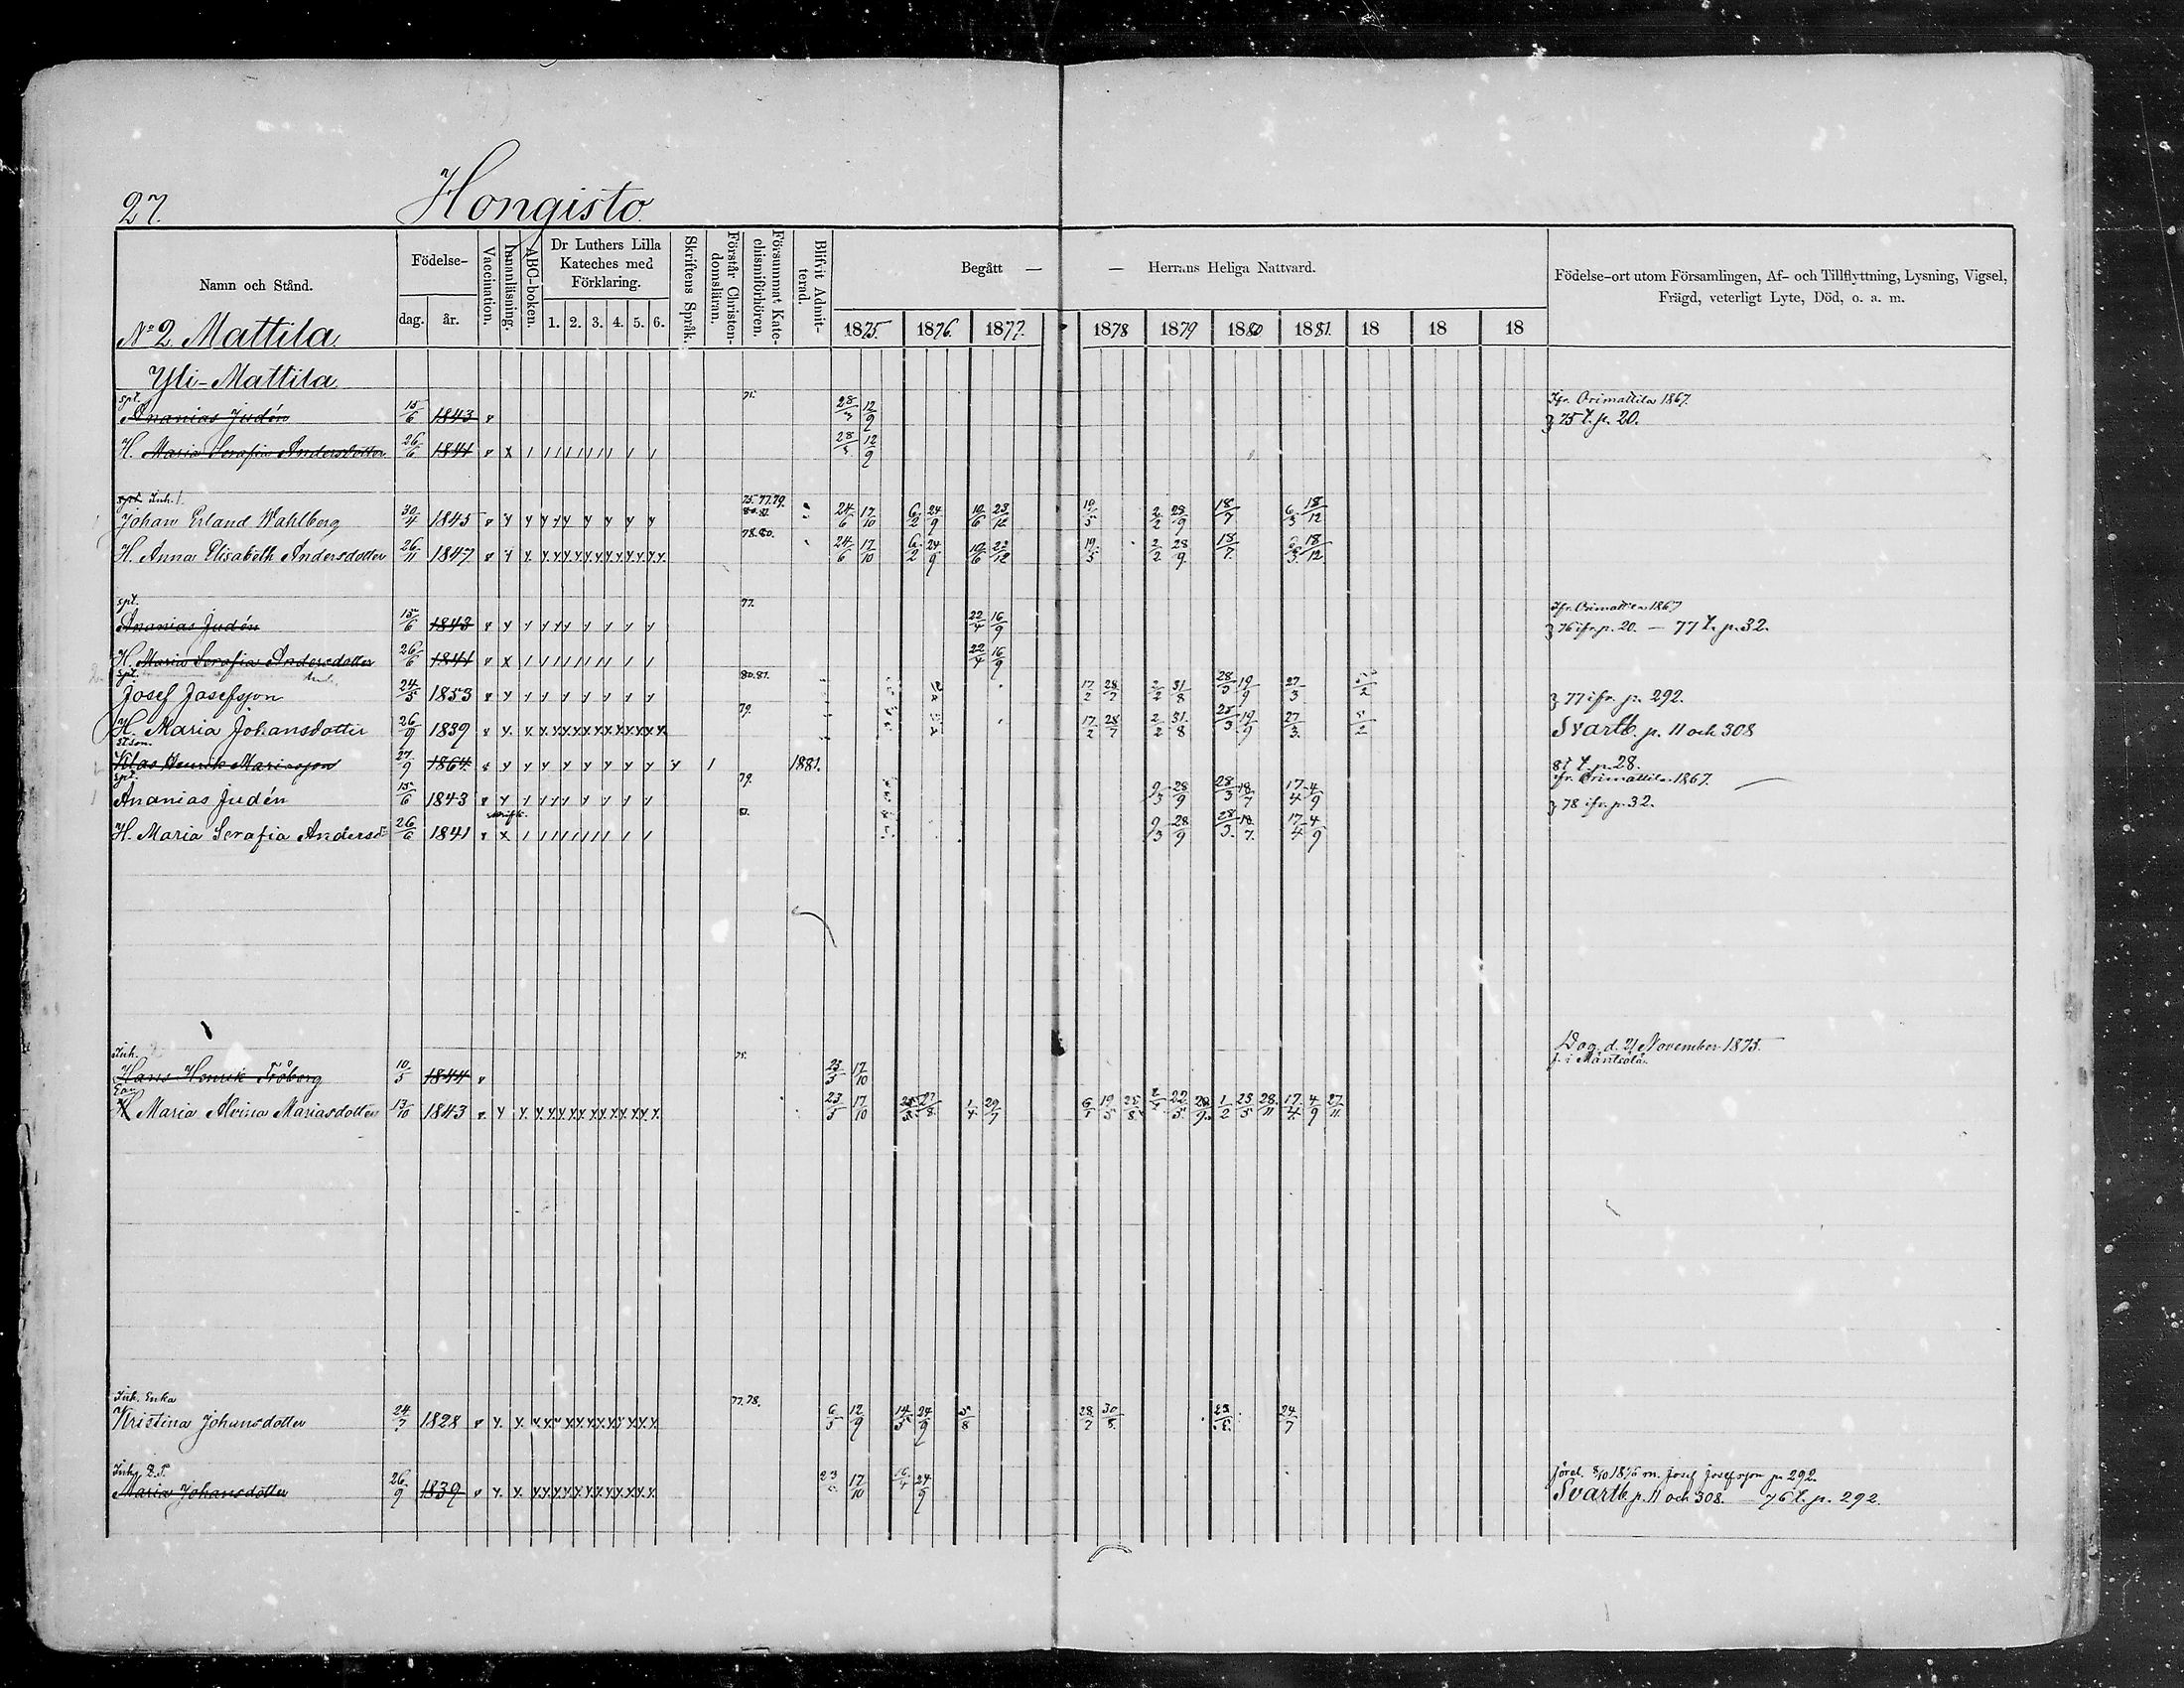 27. Hongisto
Namn och Stånd.
Födelse-
dag. år.
Vaccination.
Innanläsning.
ABC-boken.
Dr Luthers Lilla
Kateches med
Förklaring.
1. 2. 3. 4. 5. 6.
Skriftens Språk.
Förstår Christen-
domsläran.
Försummat Kate-
chismiförhören.
Blifvit Admit-
terad.
Begått — — Herrans Heliga Nattvard.
1875. 1876. 1877. 1878 1879 1880 1881. 18 18 18
Födelse-ort utom Församlingen, Af- och Tillflyttning, Lysning, Vigsel,
Frägd, veterligt Lyte, Död, o. a. m.
No 2 Mattila
Yli-Mattila
spt. 75. Ifr. Orimattila 1867.
Ananias Judén 15/6 1843 v 28/3 12/9 75 t. p. 20.
H. Maria Serafia Andersdotter 26/6 1841 v x 28/3 12/9
Inh. 75. 77. 79.
80. 81.
Johan Erland Wahlberg 30/4 1845 24/6 17/10 6/2 24/9 10/6 23/12 19/5 2/2 28/9 18/7 6/3 18/12
78. 80.
H. Anna Elisabeth Andersdotter 26/11 1847 24/6 17/10 6/2 24/9 10/6 22/12 19/5 2/2 28/9 18/7 6/3 18/12
spt. 77. Ifr. Orimattila 1867
Ananias Judén 15/6 1843 22/4 16/9 76 ifr. p. 20. — 77 t. p. 32.
H. Maria Serafia Andersdotter 26/6 1841 22/4 16/9
spt. 80. 81.
Josef Josefsson 24/5 1853 17/2 28/7 2/2 31/8 28/3 19/9 27/3 5/2 77 ifr. p. 292.
79.
H. Maria Johansdotter 26/9 1839 17/2 28/7 2/2 31/8 25/3 19/9 27/3 5/2 Svartb. p. 11 och 308
st. son.
Klas Henrik Mariasson 27/9 1864 1881. 81 t. p. 28.
spt. 79. ifr. Orimattila 1867.
Ananias Judén 15/6 1843 9/3 28/9 28/3 18/7 17/4 4/9 78 ifr. p. 32.
H. Maria Serafia Andersd. 26/6 1841 9/3 28/9 28/3 18/7 17/4 4/9
Inh. 75. Dog. d. 21 November 1875.
f. i Mäntsälä.
Hans Henrik Fröberg 10/5 1844 v 23/5 17/10
Enk.
H Maria Alvina Mariasdotter 13/10 1843 23/5 17/10 27/8 1/4 29/7 6/1 19/5 25/8 22/5 28/9 1/2 23/5 28/11 17/4 4/9 27/11
Inh. Enka 77. 78.
Kristina Johansdotter 24/7 1828 6/5 12/9 14/5 24/9 5/8 28/7 30/8 24/7
Inh.
Maria Johansdotter 26/9 1839 17/10 16/4 24/9
förel. 8/10 1876 m. Josef Josefsson p. 292.
Svartb. p. 11 och 308. — 76 t. p. 292.